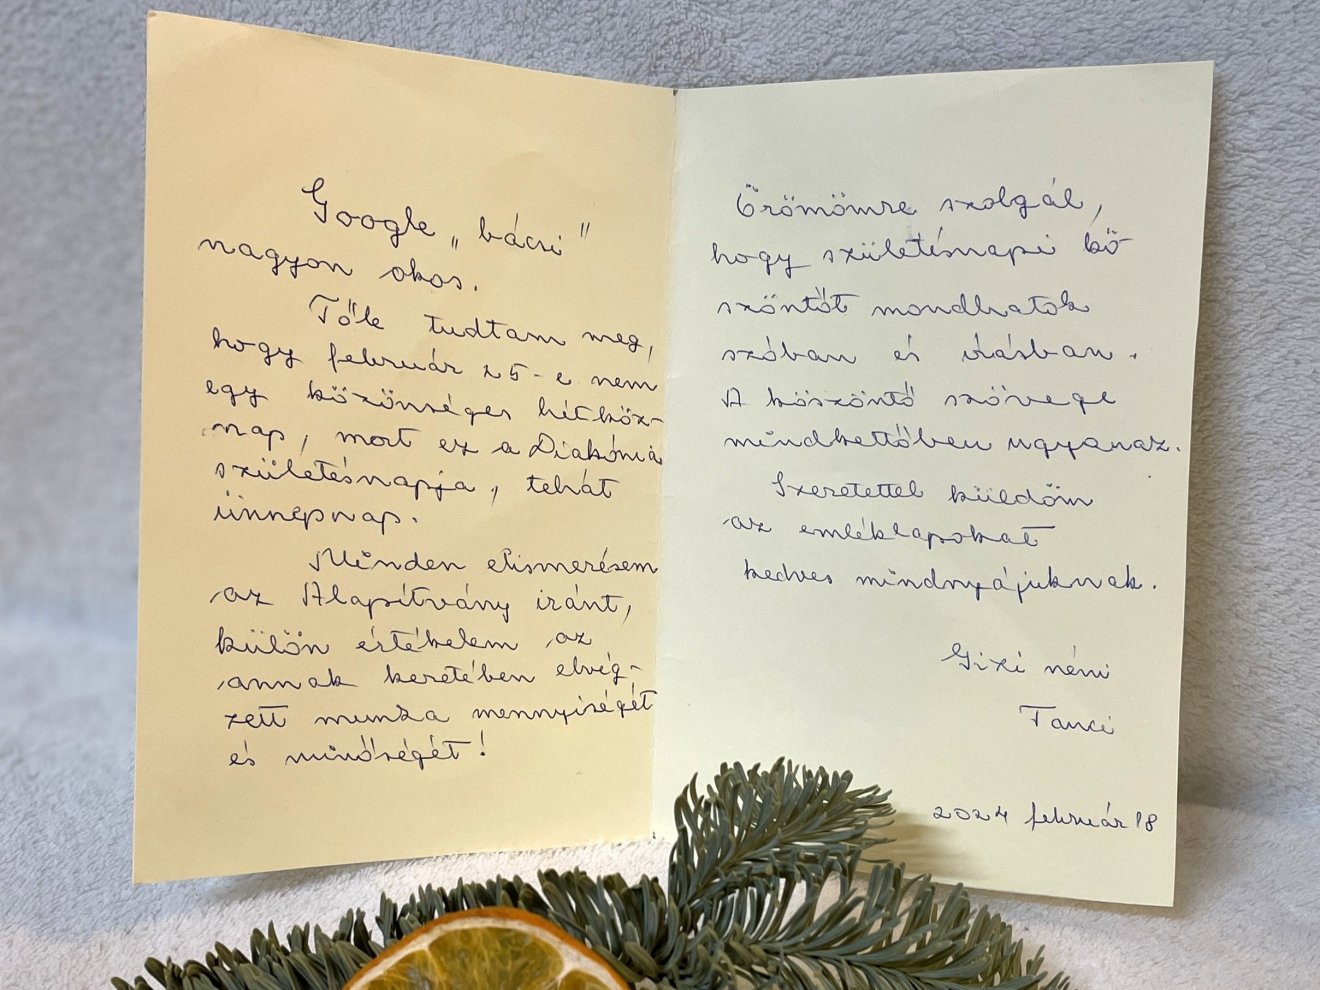 Google „bácsi"
nagyon okos.
Tőle tudtam meg,
hogy február 25-e nem
egy közönséges hétköz-
nap, mert ez a Diakónia
születésnapja, tehát
ünnepnap.
Minden elismerésem
az Alapítvány iránt,
külön értékelem az
annak keretében elvég-
zett munka mennyiségét
és minőségét!
Örömömre szolgál,
hogy születésnapi kö-
szöntőt mondhatok
szóban és írásban.
A köszöntő szövege
mindkettőben ugyanaz.
Szeretettel küldöm
az emléklapokat
kedves mindnyájuknak.
Gizi néni
Fanci
2024 február 18